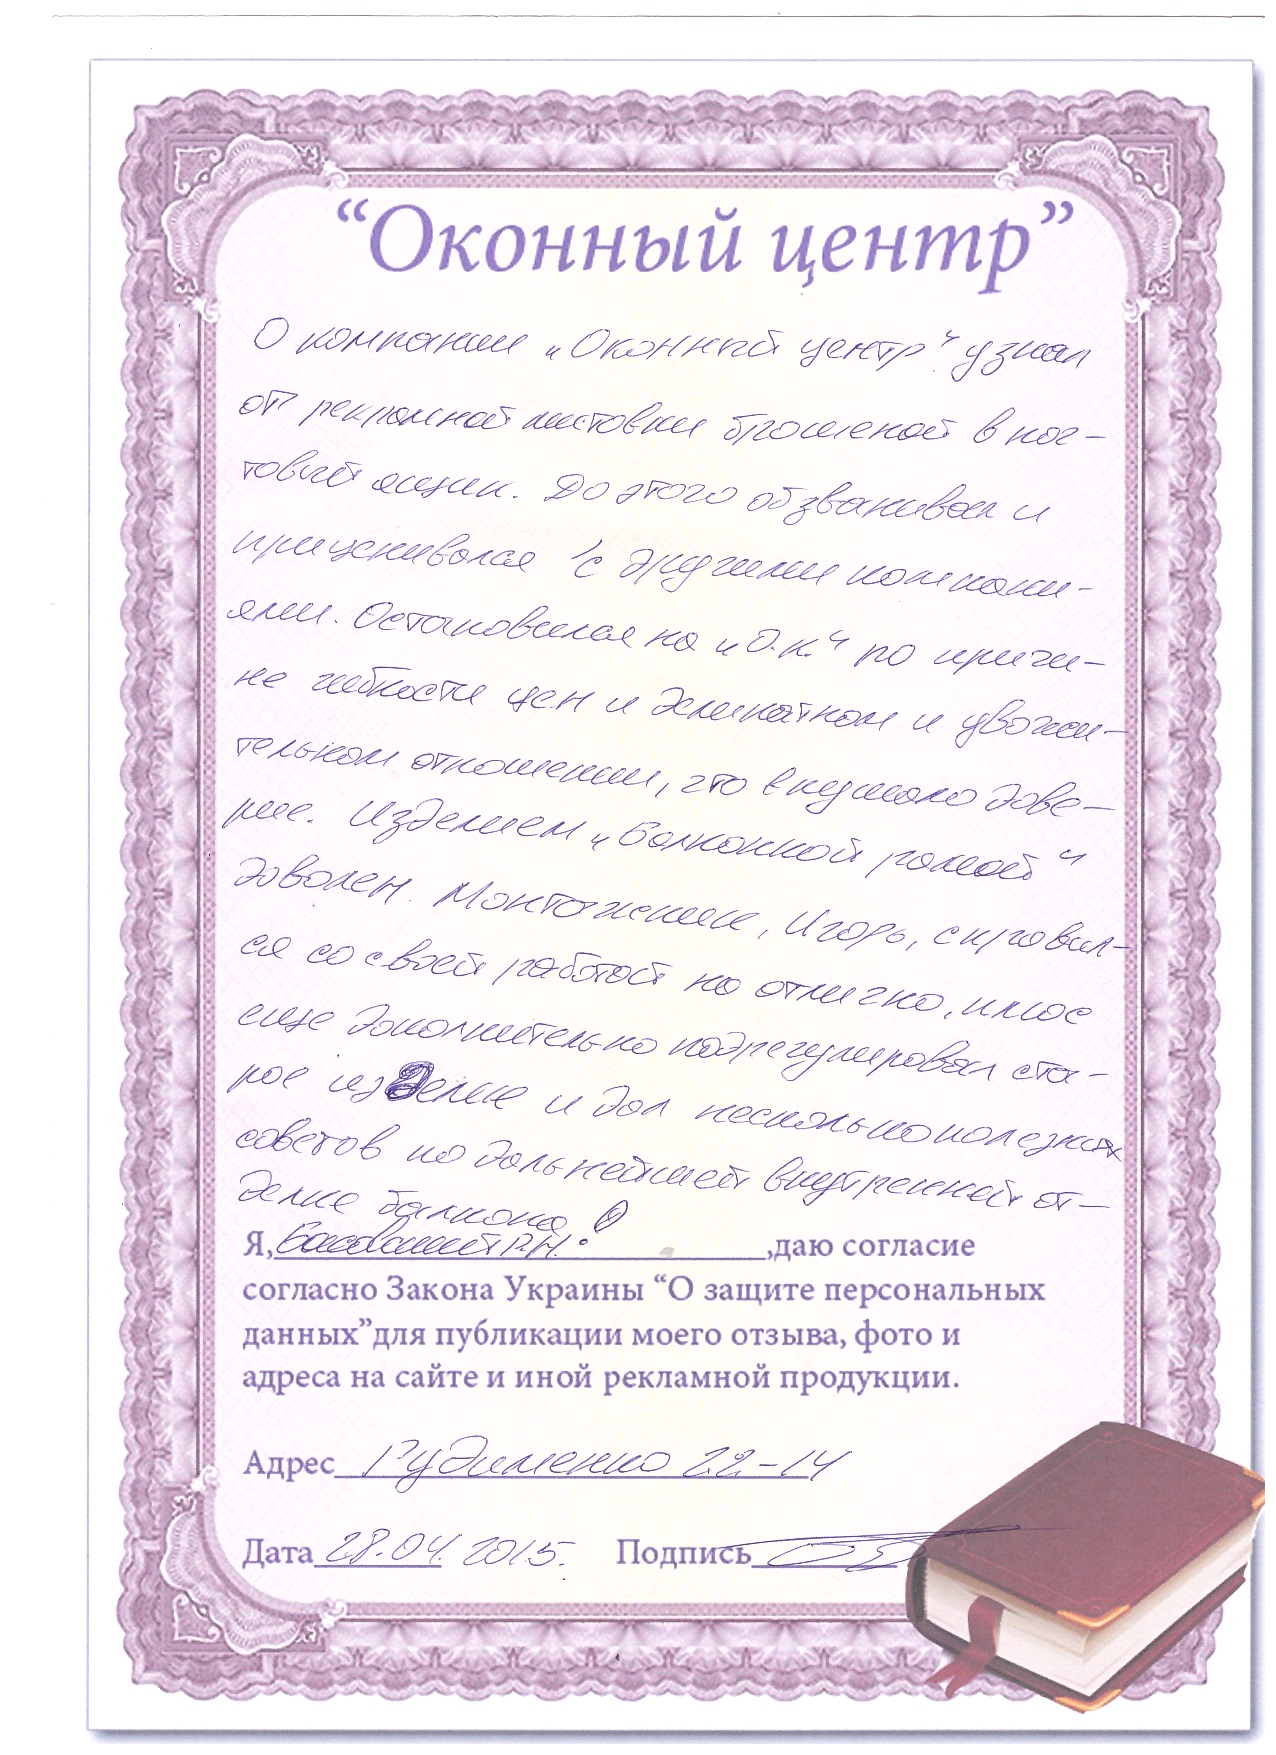 “Оконный центр”
О компании „Оконный центр“ узнал
от рекламной листовки брошеной в поч-
товый ящик. До этого обзванивал и
приценивался с другими компани-
ями. Остановился на „О.к.“ по причи-
не гибкости цен и деликатном и уважи-
тельном отношении, что внушало дове-
рие. Изделием „балконной рамой“
доволен. Монтажник, Игорь, справил-
ся со своей работой на отлично, плюс
еще дополнительно подрегулировал ста-
рое изделие и дал несколько полезных
советов по дальнейшей внутренней от-
делке балкона!
Я, Р.Н. ,даю согласие
согласно Закона Украины “О защите персональных
данных”для публикации моего отзыва, фото и
адреса на сайте и иной рекламной продукции.
Адрес Рудименко 22-14
Дата 28.04.2015. Подпись